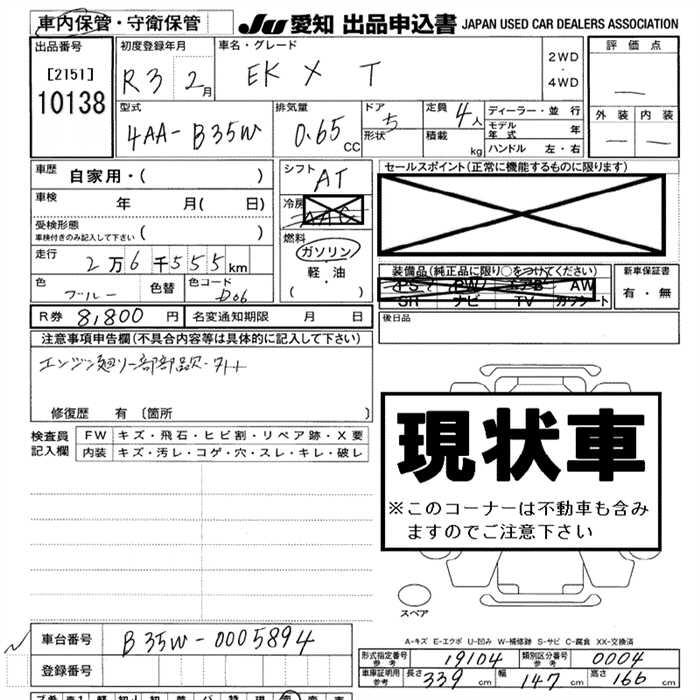 車内保管・守衛保管
JU 愛知 出品申込書 JAPAN USED CAR DEALERS ASSOCIATION
出品番号
[2151]
10138
初度登録年月
R3 2月
車名・グレード
EK X T
2WD
・
4WD
評価点
外装 内装
型式
4AA-B35W
排気量
0.65 CC
ドア
5
形状
定員
4人
積載 kg
ディーラー・並行
モデル年式 年
ハンドル 左・右
車歴
自家用・( )
車検
年 月( 日)
受検形態
車検付きのみ記入して下さい ( )
走行
2万6千555km
色
ブルー
色替
色コード
D06
シフト
AT
冷房
AAC
燃料
ガソリン
軽・油
( )
セールスポイント(正常に機能するものに限ります)
装備品(純正品に限り○をつけてください)
PS PW エアB AW
SR ナビ TV カワシート
新車保証書
有・無
R券 8,800円 名変通知期限 月 日
後日品
注意事項申告欄(不具合内容等は具体的に記入して下さい)
修復歴 有 〔箇所 〕
検査員
記入欄
FW キズ・飛石・ヒビ割・リペア跡・X要
内装 キズ・汚レ・コゲ・穴・スレ・キレ・破レ
現状車
※このコーナーは不動車も含み
ますのでご注意下さい
スペア
A-キズ E-エクボ U-凹み W-補修跡 S-サビ C-腐食 XX-交換済
車台番号 B35W-0005894
登録番号
型式指定番号
参考
19104
類別区分番号
参考
0004
車庫証明用
参考
長さ 339cm 幅 147cm 高さ 166cm